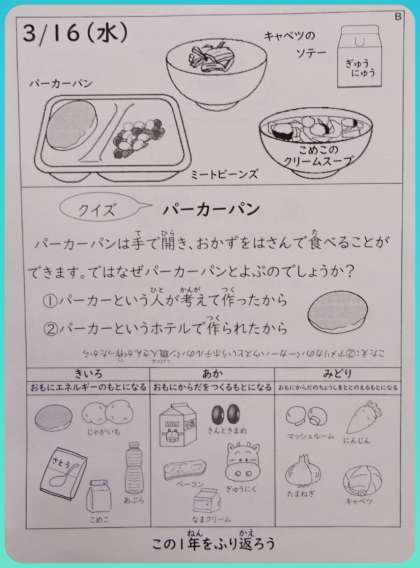 B
3/16(水)
キャベツの
ソテー
ぎゅう
にゅう
パーカーパン
こめこの
クリームスープ
ミートビーンズ
クイズ
パーカーパン
パーカーパンは手で開き、おかずをはさんで食べることが
できます。ではなぜパーカーパンとよぶのでしょうか?
①パーカーという人が考えて作ったから
②パーカーというホテルで作られたから
こたえ:②アメリカのパーカーハウスというホテルのパン職人さんが作ったから
きいろ
あか
みどり
おもにエネルギーのもとになる
おもにからだをつくるもとになる
おもにからだのちょうしをととのえるもとになる
じゃがいも
きんときまめ
マッシュルーム
にんじん
さとう
あぶら
ベーコン
ぎゅうにく
たまねぎ
キャベツ
こめこ
なまクリーム
この1年をふり返ろう